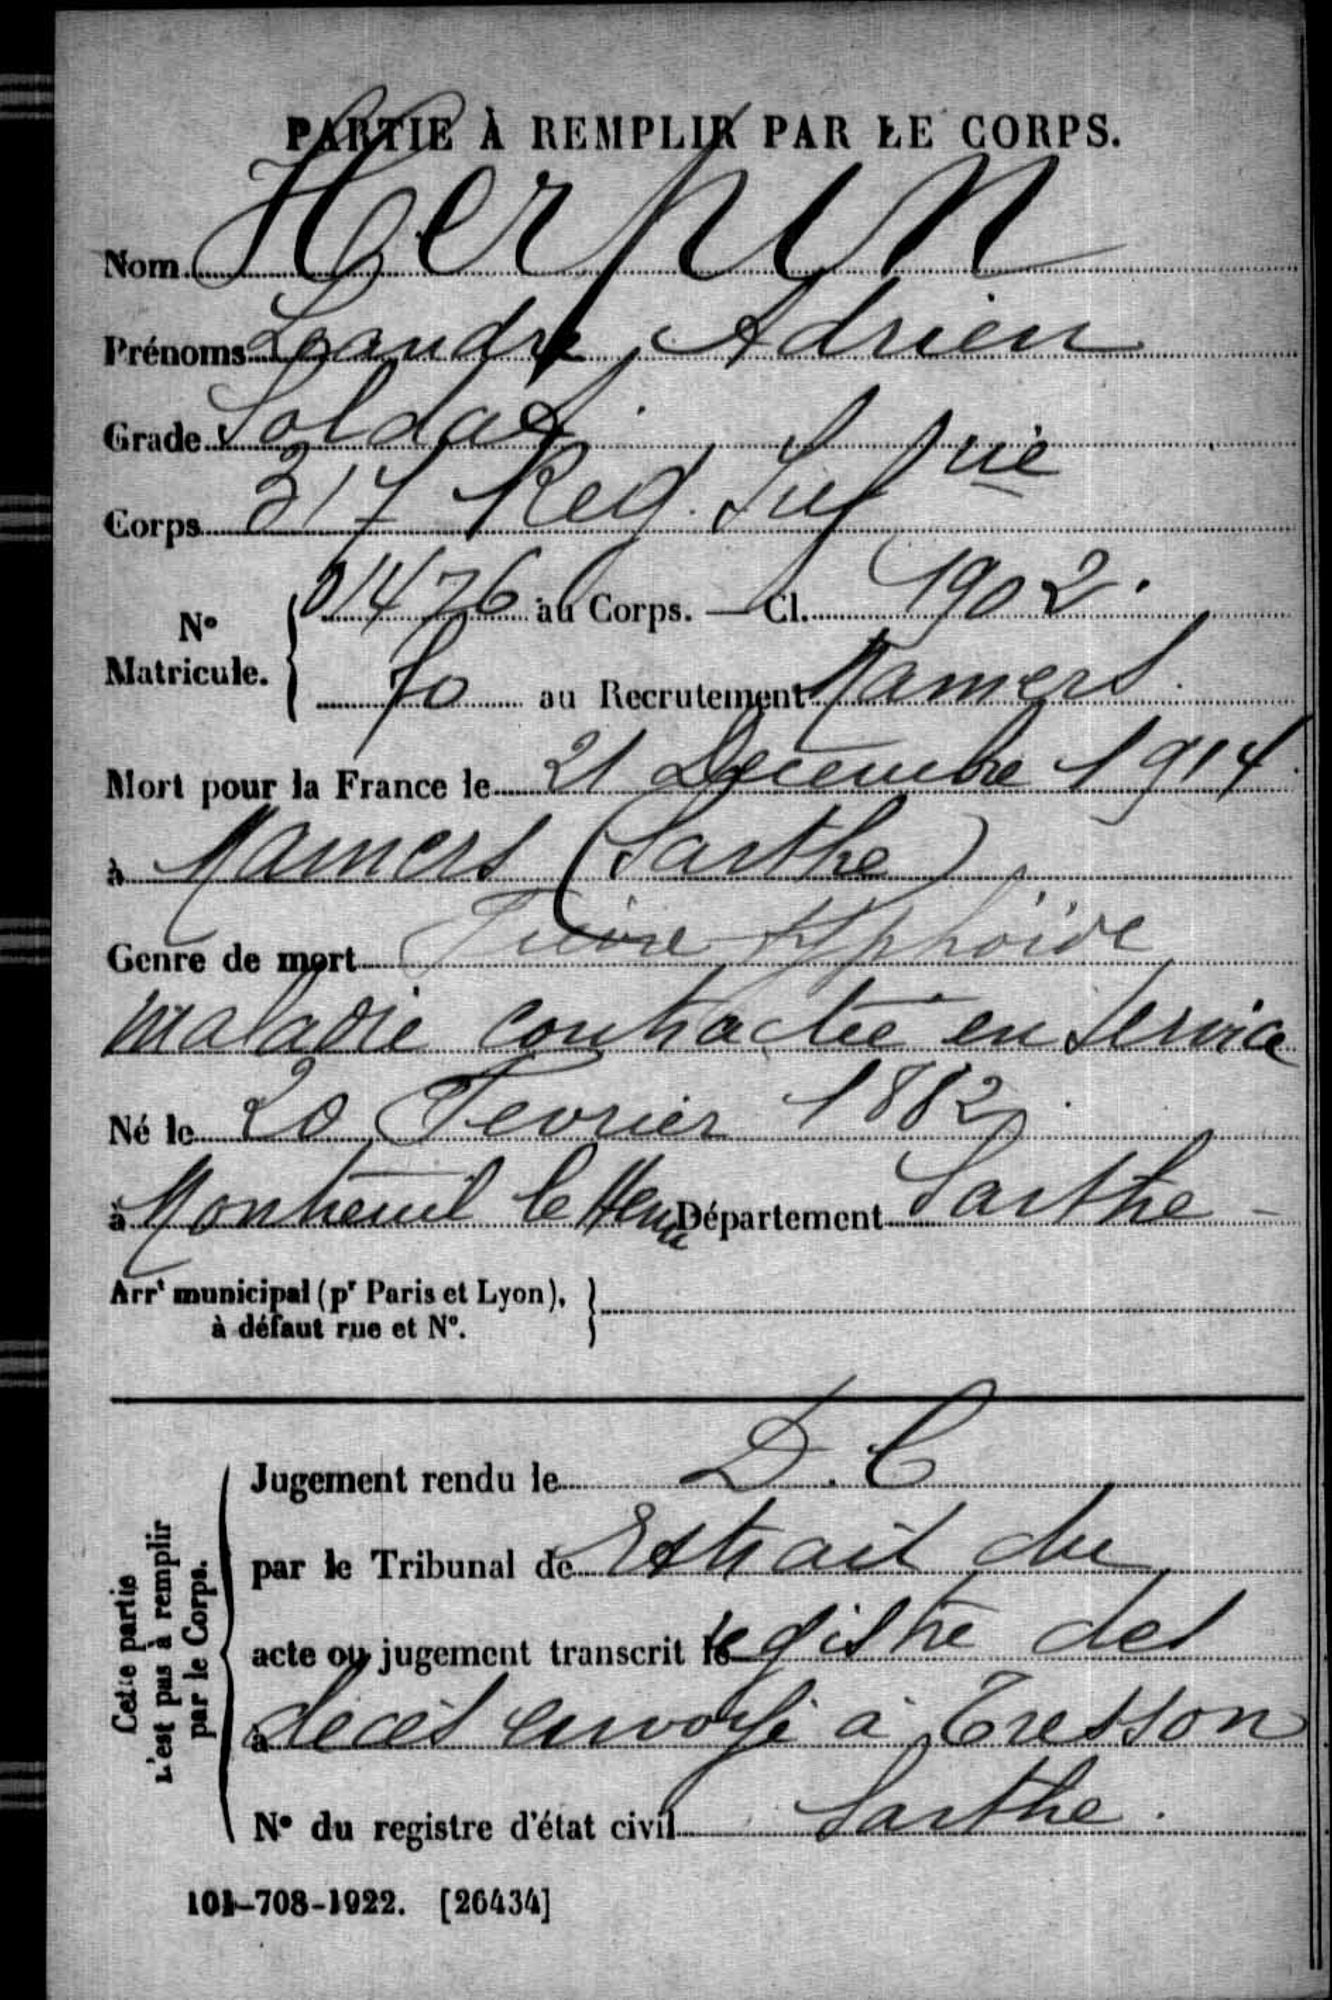 PARTIE À REMPLIR PAR LE CORPS.
Nom Herpin
Prénoms Léandre, Adrien
Grade Soldat
Corps 317 Reg. Inf rie
N° Matricule. { 01476 au Corps. — Cl. 1902.
70 au Recrutement Mamers
Mort pour la France le 21 Décembre 1914
à Mamers (Sarthe)
Genre de mort Fièvre typhoïde
maladie contractée en service
Né le 20 Fevrier 1882
à Montreuil le Henri Département Sarthe
Arrt municipal (pr Paris et Lyon), }
à défaut rue et N°.
Cette partie
n'est pas à remplir
par le Corps.
Jugement rendu le D.C
par le Tribunal de Extrait du
acte ou jugement transcrit le registre des
à décès envoyé à Tresson
N° du registre d'état civil Sarthe.
101-708-1922. [26434]